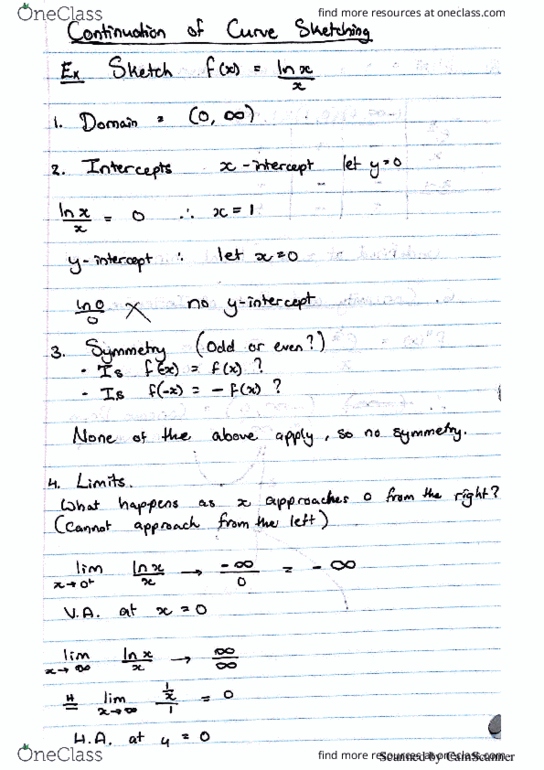 OneClass
find more resources at oneclass.com
Continuation of Curve Sketching
Ex Sketch f(x) = ln x / x
1. Domain = (0, ∞)
2. Intercepts x-intercept let y=0
ln x / x = 0 ∴ x = 1
y-intercept ∴ let x=0
ln 0 / 0 ✗ no y-intercept
3. Symmetry (Odd or even?)
• Is f(-x) = f(x) ?
• Is f(-x) = - f(x) ?
None of the above apply, so no symmetry.
4. Limits.
What happens as x approaches 0 from the right?
(Cannot approach from the left)
lim x→0⁺ ln x / x → -∞ / 0 = - ∞
V.A. at x = 0
lim x→∞ ln x / x → ∞ / ∞
H= lim x→∞ (1/x) / 1 = 0
H.A. at y = 0
OneClass
find more resources at oneclass.com
Scanned by CamScanner